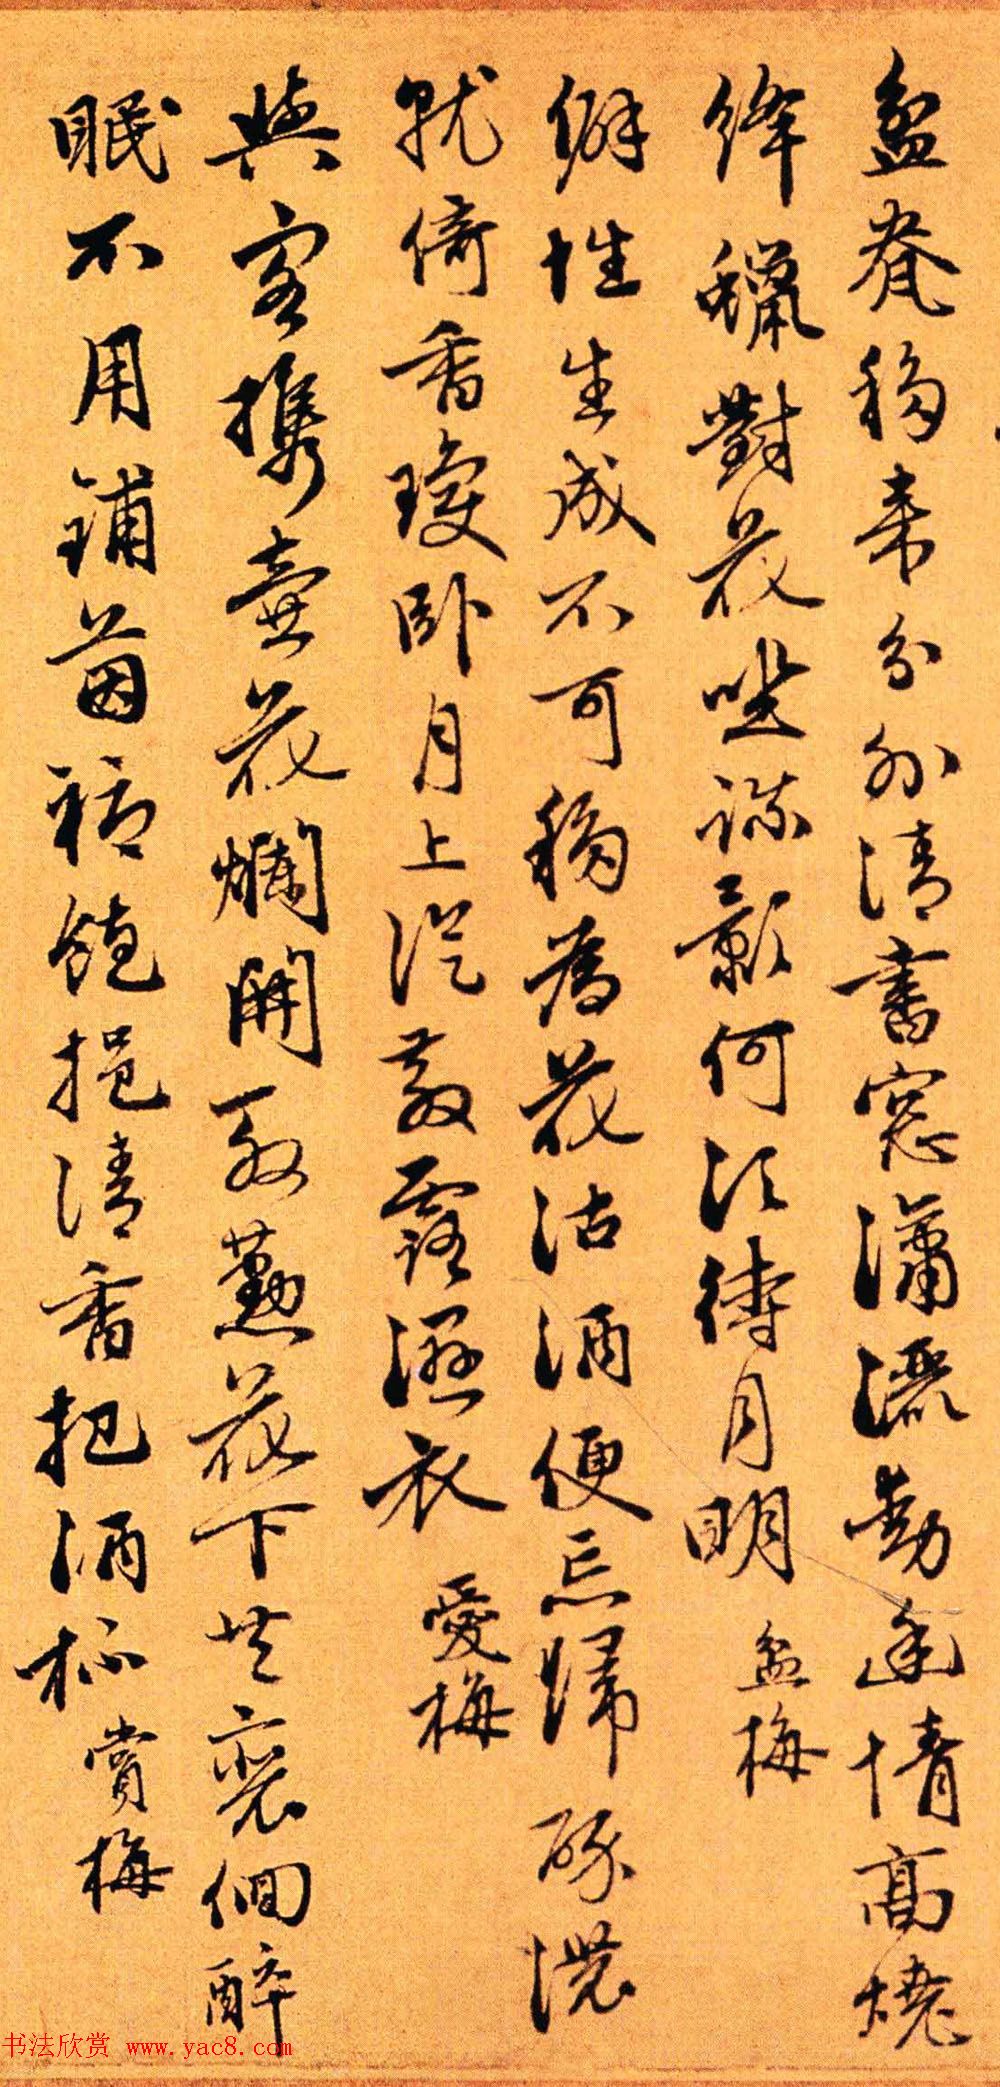 盆養移來分外清書窓瀟灑動逢情高燒
絳蠟對花坐疎影何須待月明 盆梅
僻性生成不可移為花沽酒便忘歸破襟
就倚香瓊臥月上從教露濕衣 愛梅
與客攜壺花爛開慇懃花下共裴徊醉
眠不用鋪茵褥饒挹清香把酒杯 賞梅
书法欣赏 www.yac8.com